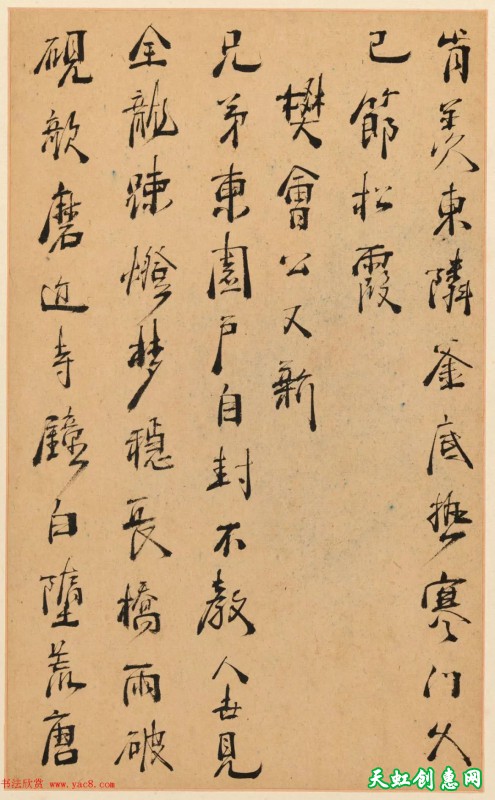 肯羨東隣釜底熱寒门久
已節松霞
樊會公又新
兄弟東園戶自封不教人世見
全龍踈燈梦穩長橋雨破
硯歌磨近寺鐘白墮荒唐
书法欣赏 www.yac8.com
天虹创惠网